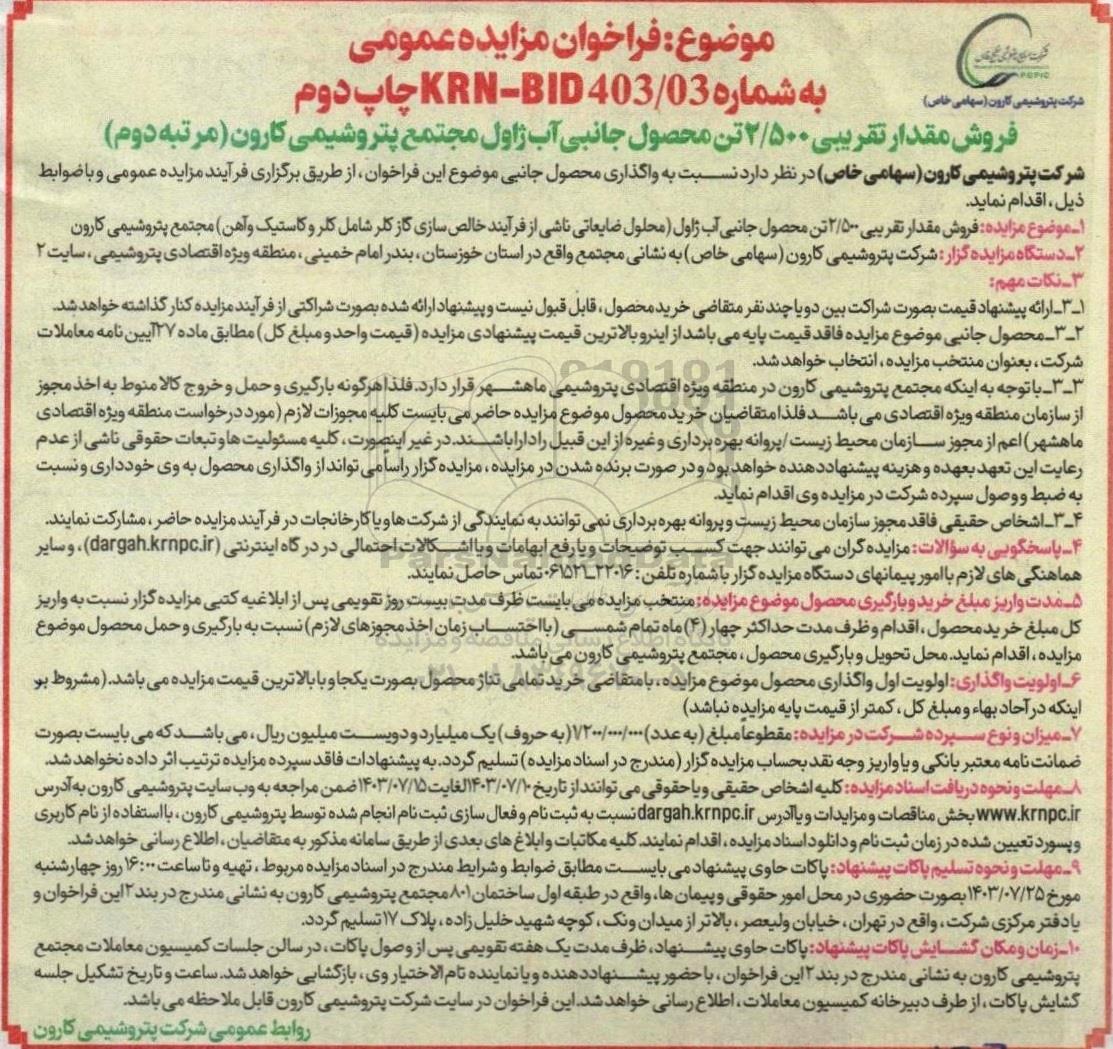 موضوع: فراخوان مزایده عمومی
به شماره KRN-BID 403/03 چاپ دوم
شرکت پتروشیمی کارون (سهامی خاص)
PGPIC
فروش مقدار تقریبی ۲/۵۰۰ تن محصول جانبی آب ژاول مجتمع پتروشیمی کارون (مرتبه دوم)
شرکت پتروشیمی کارون (سهامی خاص) در نظر دارد نسبت به واگذاری محصول جانبی موضوع این فراخوان، از طریق برگزاری فرآیند مزایده عمومی و با ضوابط
ذیل، اقدام نماید.
۱ـ موضوع مزایده: فروش مقدار تقریبی ۲/۵۰۰ تن محصول جانبی آب ژاول (محلول ضایعاتی ناشی از فرآیند خالص سازی گاز کلر شامل کلر و کاستیک و آهن) مجتمع پتروشیمی کارون
۲ـ دستگاه مزایده گزار: شرکت پتروشیمی کارون (سهامی خاص) به نشانی مجتمع واقع در استان خوزستان، بندر امام خمینی، منطقه ویژه اقتصادی پتروشیمی، سایت ۲
۳ـ نکات مهم:
۱ـ۳ـ ارائه پیشنهاد قیمت بصورت شراکت بین دو یا چند نفر متقاضی خرید محصول، قابل قبول نیست و پیشنهاد ارائه شده بصورت شراکتی از فرآیند مزایده کنار گذاشته خواهد شد.
۲ـ۳ـ محصول جانبی موضوع مزایده فاقد قیمت پایه می باشد از اینرو بالاترین قیمت پیشنهادی مزایده (قیمت واحد و مبلغ کل) مطابق ماده ۲۷ آیین نامه معاملات
شرکت، بعنوان منتخب مزایده، انتخاب خواهد شد.
۳ـ۳ـ با توجه به اینکه مجتمع پتروشیمی کارون در منطقه ویژه اقتصادی پتروشیمی ماهشهر قرار دارد. فلذا هرگونه بارگیری و حمل و خروج کالا منوط به اخذ مجوز
از سازمان منطقه ویژه اقتصادی می باشد فلذا متقاضیان خرید محصول موضوع مزایده حاضر می بایست کلیه مجوزات لازم (مورد درخواست منطقه ویژه اقتصادی
ماهشهر) اعم از مجوز سازمان محیط زیست / پروانه بهره برداری و غیره از این قبیل را دارا باشند. در غیر اینصورت، کلیه مسئولیت ها و تبعات حقوقی ناشی از عدم
رعایت این تعهد بعهده و هزینه پیشنهاددهنده خواهد بود و در صورت برنده شدن در مزایده، مزایده گزار راساً می تواند از واگذاری محصول به وی خودداری و نسبت
به ضبط و وصول سپرده شرکت در مزایده وی اقدام نماید.
۴ـ۳ـ اشخاص حقیقی فاقد مجوز سازمان محیط زیست و پروانه بهره برداری نمی توانند به نمایندگی از شرکت ها و یا کارخانجات در فرآیند مزایده حاضر، مشارکت نمایند.
۴ـ پاسخگویی به سؤالات: مزایده گران می توانند جهت کسب توضیحات و یا رفع ابهامات و یا اشکالات احتمالی در درگاه اینترنتی (dargah.krnpc.ir)، و سایر
هماهنگی های لازم با امور پیمانهای دستگاه مزایده گزار با شماره تلفن: ۲۲۰۱۶-۰۶۱۵۲۱ تماس حاصل نمایند.
۵ـ مدت واریز مبلغ خرید و بارگیری محصول موضوع مزایده: منتخب مزایده می بایست ظرف مدت بیست روز تقویمی پس از ابلاغیه کتبی مزایده گزار نسبت به واریز
کل مبلغ خرید محصول، اقدام و ظرف مدت حداکثر چهار (۴) ماه تمام شمسی (با احتساب زمان اخذ مجوزهای لازم) نسبت به بارگیری و حمل محصول موضوع
مزایده، اقدام نماید. محل تحویل و بارگیری محصول، مجتمع پتروشیمی کارون می باشد.
۶ـ اولویت واگذاری: اولویت اول واگذاری محصول موضوع مزایده، با متقاضی خرید تمامی تناژ محصول بصورت یکجا و با بالاترین قیمت مزایده می باشد. (مشروط بر
اینکه در آحاد بهاء و مبلغ کل، کمتر از قیمت پایه مزایده نباشد)
۷ـ میزان و نوع سپرده شرکت در مزایده: مقطوعاً مبلغ (به عدد) ۱/۲۰۰/۰۰۰/۰۰۰ (به حروف) یک میلیارد و دویست میلیون ریال، می باشد که می بایست بصورت
ضمانت نامه معتبر بانکی و یا واریز وجه نقد بحساب مزایده گزار (مندرج در اسناد مزایده) تسلیم گردد. به پیشنهادات فاقد سپرده مزایده ترتیب اثر داده نخواهد شد.
۸ـ مهلت و نحوه دریافت اسناد مزایده: کلیه اشخاص حقیقی و یا حقوقی می توانند از تاریخ ۱۴۰۳/۰۷/۱۰ لغایت ۱۴۰۳/۰۷/۱۵ ضمن مراجعه به وب سایت پتروشیمی کارون به آدرس
www.krnpc.ir بخش مناقصات و مزایدات و یا آدرس dargah.krnpc.ir نسبت به ثبت نام و فعال سازی ثبت نام انجام شده توسط پتروشیمی کارون، با استفاده از نام کاربری
و پسورد تعیین شده در زمان ثبت نام و دانلود اسناد مزایده، اقدام نمایند. کلیه مکاتبات و ابلاغ های بعدی از طریق سامانه مذکور به متقاضیان، اطلاع رسانی خواهد شد.
۹ـ مهلت و نحوه تسلیم پاکات پیشنهاد: پاکات حاوی پیشنهاد می بایست مطابق ضوابط و شرایط مندرج در اسناد مزایده مربوط، تهیه و تا ساعت ۱۶:۰۰ روز چهارشنبه
مورخ ۱۴۰۳/۰۷/۲۵ بصورت حضوری در محل امور حقوقی و پیمان ها، واقع در طبقه اول ساختمان ۸۰۱ مجتمع پتروشیمی کارون به نشانی مندرج در بند ۲ این فراخوان و
یا دفتر مرکزی شرکت، واقع در تهران، خیابان ولیعصر، بالاتر از میدان ونک، کوچه شهید خلیل زاده، پلاک ۱۷ تسلیم گردد.
۱۰ـ زمان و مکان گشایش پاکات پیشنهاد: پاکات حاوی پیشنهاد، ظرف مدت یک هفته تقویمی پس از وصول پاکات، در سالن جلسات کمیسیون معاملات مجتمع
پتروشیمی کارون به نشانی مندرج در بند ۲ این فراخوان، با حضور پیشنهاددهنده و یا نماینده تام الاختیار وی، بازگشایی خواهد شد. ساعت و تاریخ تشکیل جلسه
گشایش پاکات، از طرف دبیرخانه کمیسیون معاملات، اطلاع رسانی خواهد شد. این فراخوان در سایت شرکت پتروشیمی کارون قابل ملاحظه می باشد.
روابط عمومی شرکت پتروشیمی کارون